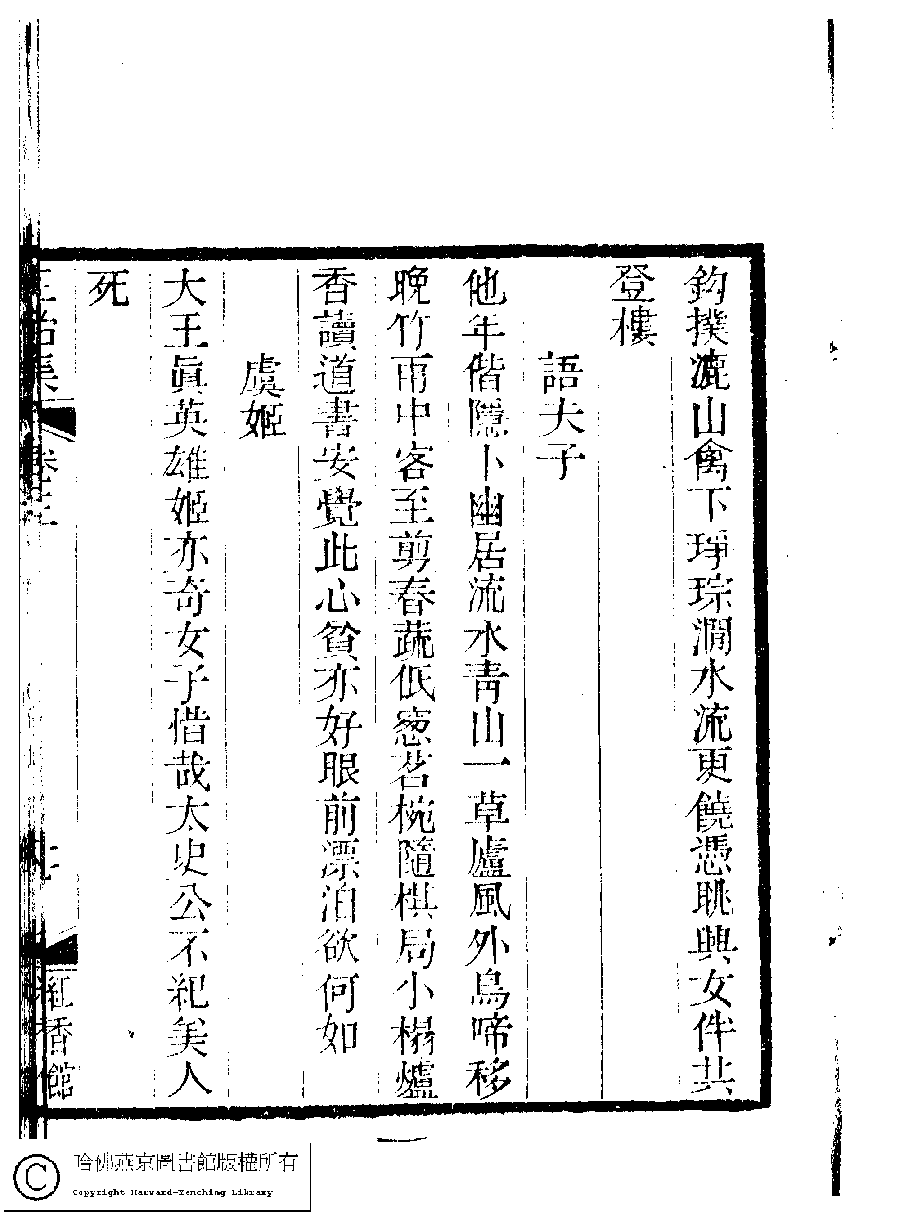 鈎撲漉山禽下琤琮澗水流更饒憑眺興女伴共
登樓
語夫子
他年偕隱卜幽居流水青山一草廬風外鳥啼移
晚竹雨中客至剪春蔬低窓茗椀隨棋局小榻爐
香讀道書安覺此心貧亦好眼前漂泊欲何如
虞姬
大王眞英雄姬亦奇女子惜哉太史公不紀美人
死
正始集
卷三
紅香館
哈佛燕京圖書館版權所有
Copyright Harvard-Yenching Library